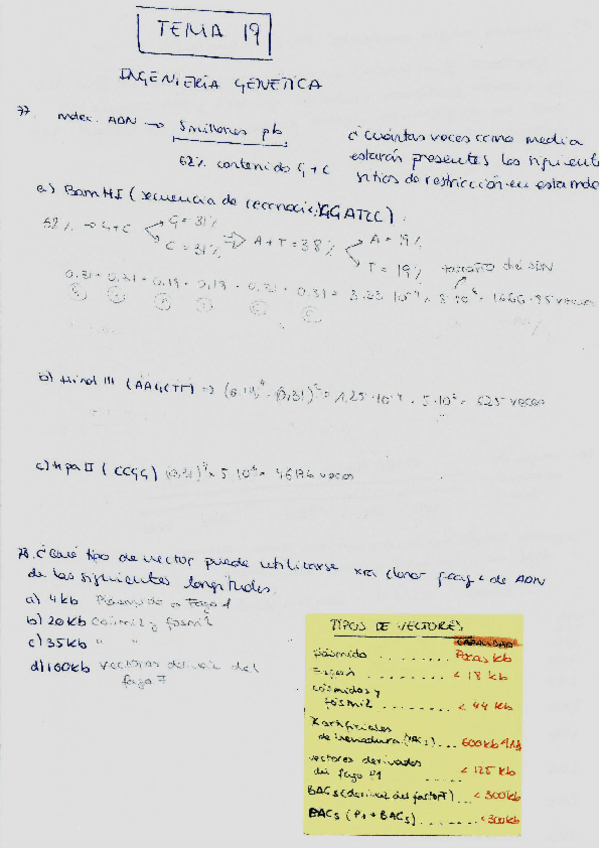 TEMA 19
INGENIERIA GENETICA
77. molec. ADN → 5 millones pb
62% contenido G+C
¿Cuántas veces como media
estarán presentes los siguiente
sitios de restricción en esta mole
a) BamHI (secuencia de reconocie: GGATCC).
62% → G+C G = 31% C = 31% ⇒ A+T = 38% A = 19% T = 19%
tamaño del ADN
0,31 · 0,31 · 0,19 · 0,19 · 0,31 · 0,31 = 3.33 10⁻⁴ × 5 10⁶ = 1666.95 veces
b) Hind III (AAGCTT) → (0.19)⁴ · (0,31)² = 1.25 · 10⁻⁴ · 5·10⁶ = 625 veces
c) HpaII (CCGG) (0,31)⁴ × 5 10⁶ = 46176 veces
78. ¿Qué tipo de vector puede utilizarse xra clonar de ADN
de las siguientes longitudes.
a) 4kb Plásmido o Fago λ
b) 20kb cósmid y fósmid
c) 35kb " "
d) 100kb vectores del
fago
TIPOS DE VECTORES
CAPACIDAD
plásmido ........ Pocas kb
........ < 18 kb
cósmidos y
fósmid ........ < 44 kb
X artificiales
de levadura (YACs) ... 600kb
vectores derivados
del fago P1 ..... < 125 kb
BACs (derivan del factor F) ... < 300kb
(P1 + BACs) ..... < 300kb